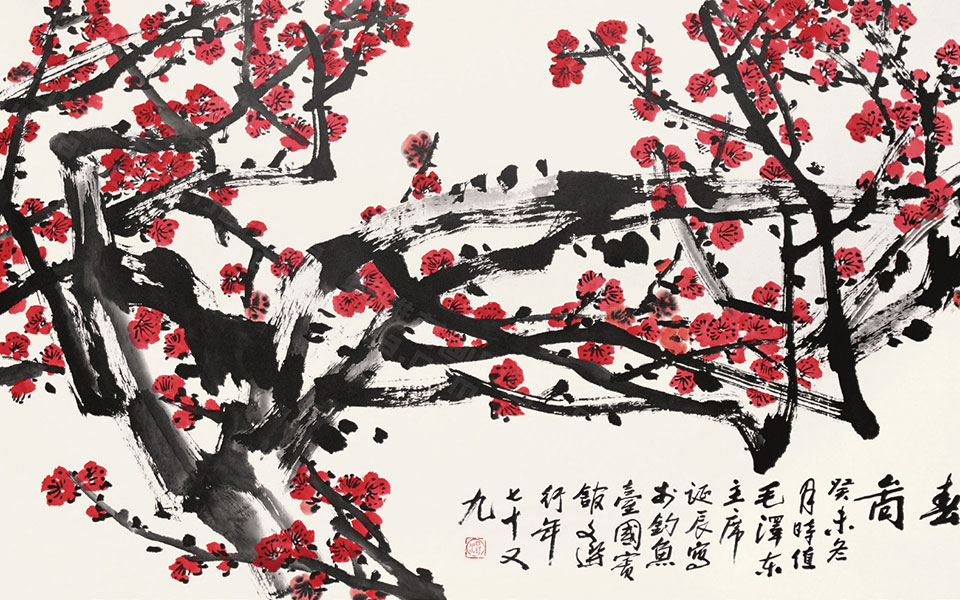 春
啚
癸未冬
月時值
毛澤东
主席
诞辰寫
於釣魚
臺國賓
館文選
行年
七十又
九